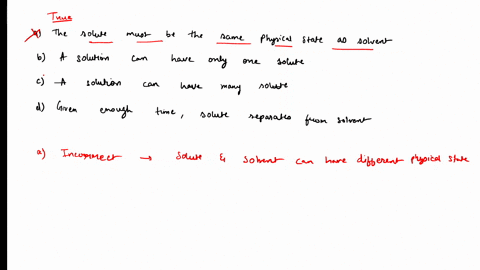 True
a) The solute must be the same physical state as solvent
b) A solution can have only one solute
c) A solution can have many solute
d) Given enough time, solute separates from solvent
a) Incorrect → Solute & Solvent can have different physical state